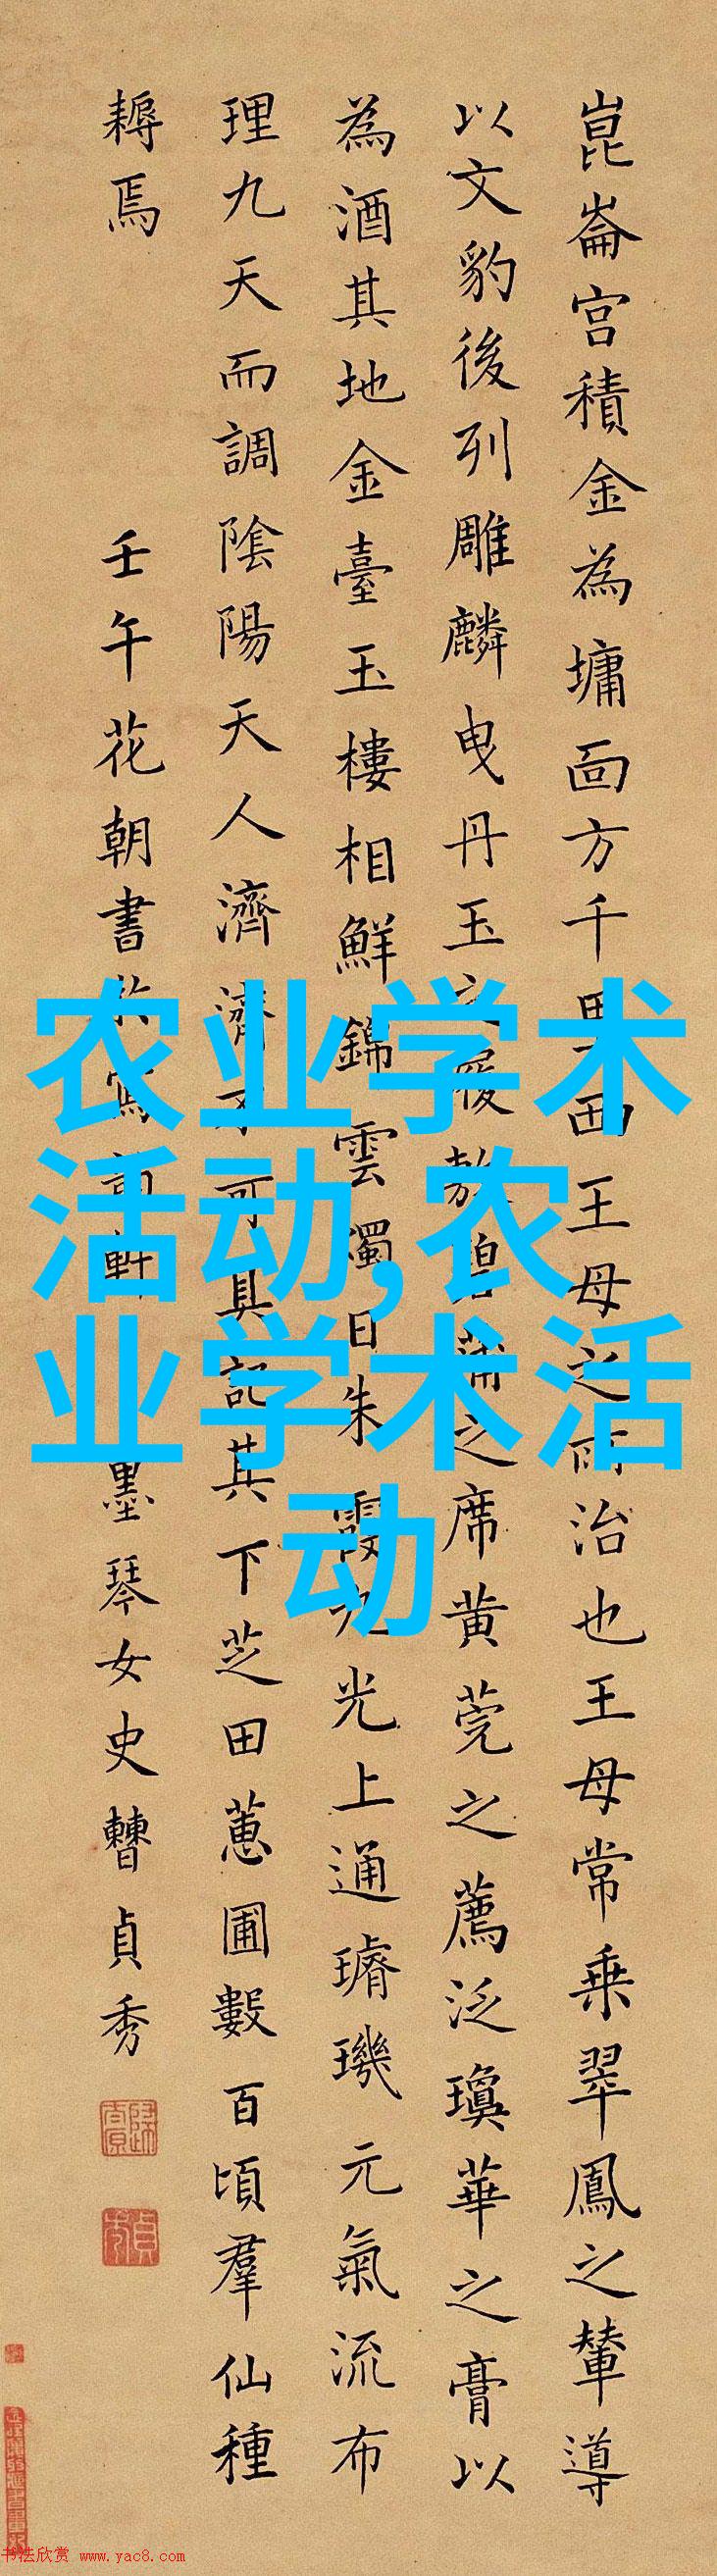 崑崙宮積金為墉面方千里西王母之所治也王母常乗翠鳳之輦導
以文豹後列雕麟曳丹玉之履敷碧蒲之席黄莞之薦泛瓊華之膏以
為酒其地金臺玉樓相鮮錦雲燭日朱霞九光上通璿璣元氣流布
理九天而調陰陽天人濟濟不可具記其下芝田蕙圃數百頃羣仙種
耨焉
壬午花朝書於寫韻軒墨琴女史曹貞秀
农业学术
活动,农
业学术活
动
书法欣赏 www.yac8.com